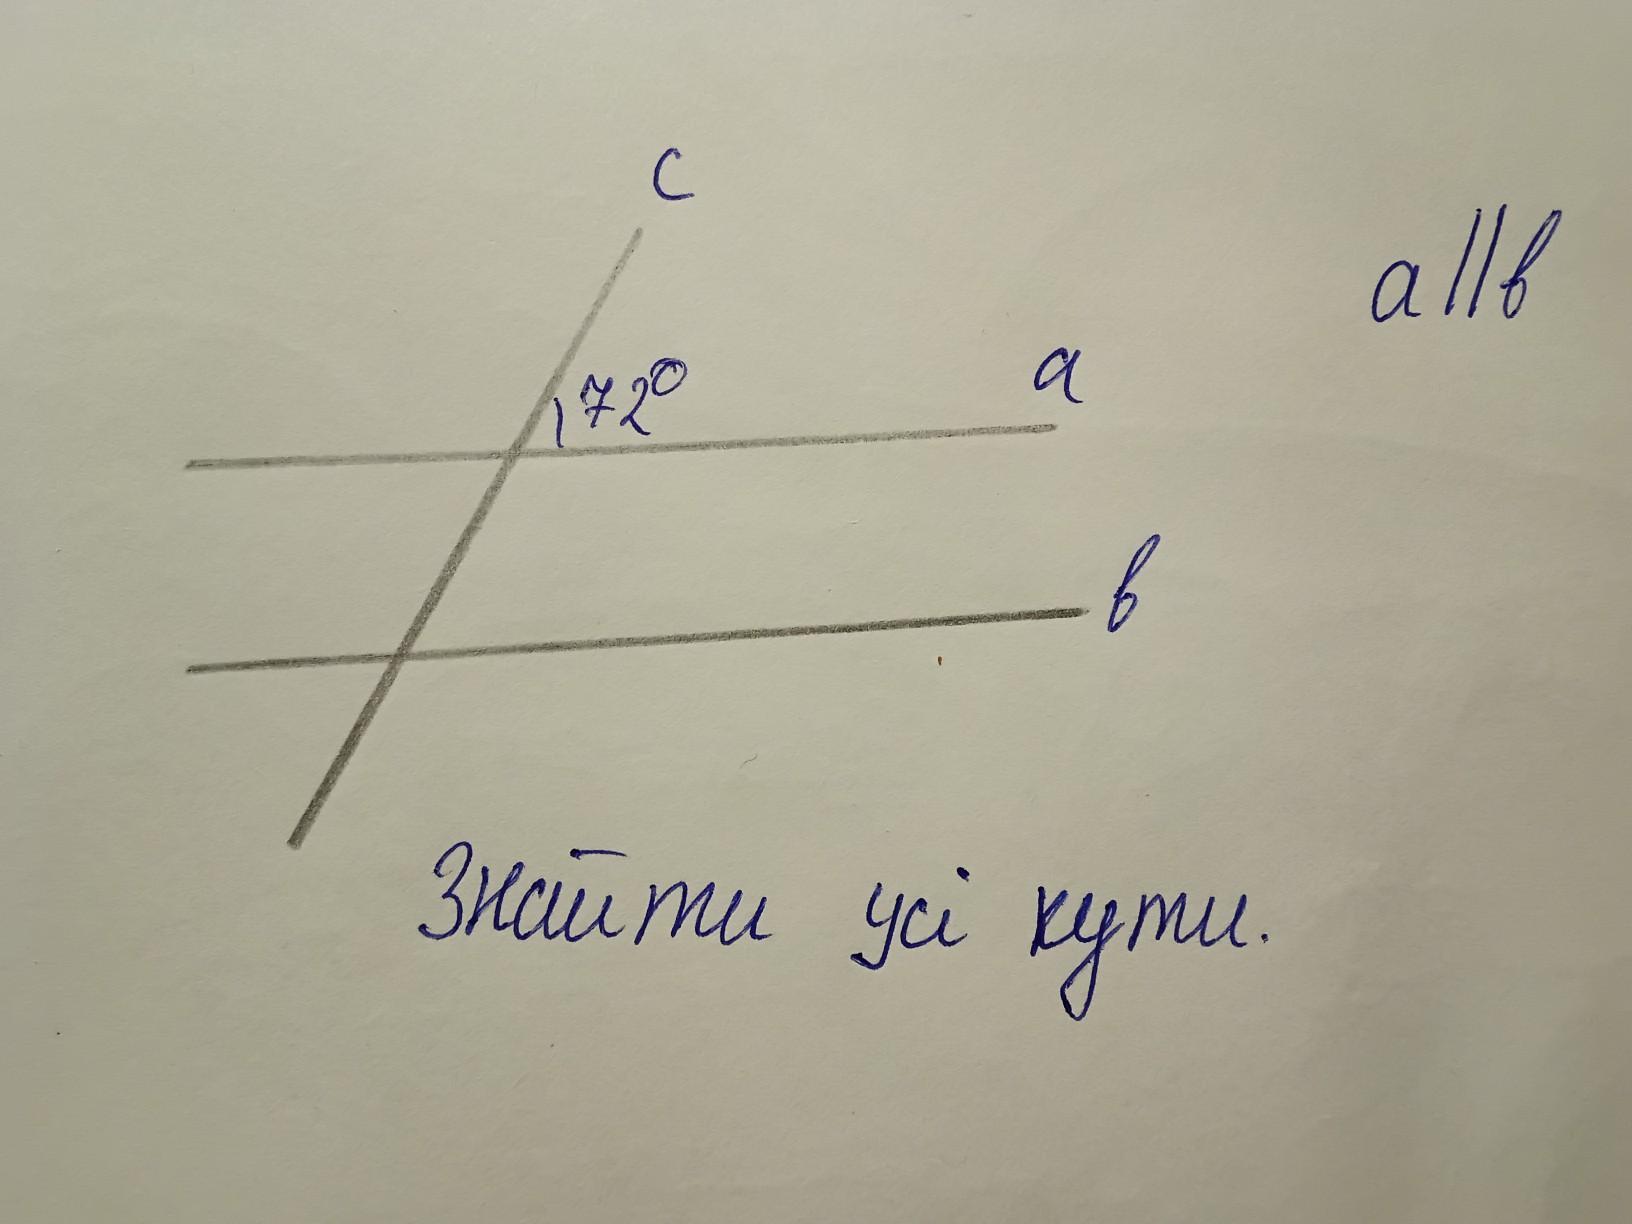 c
a||в
a
72°
в
Знайти усі кути.